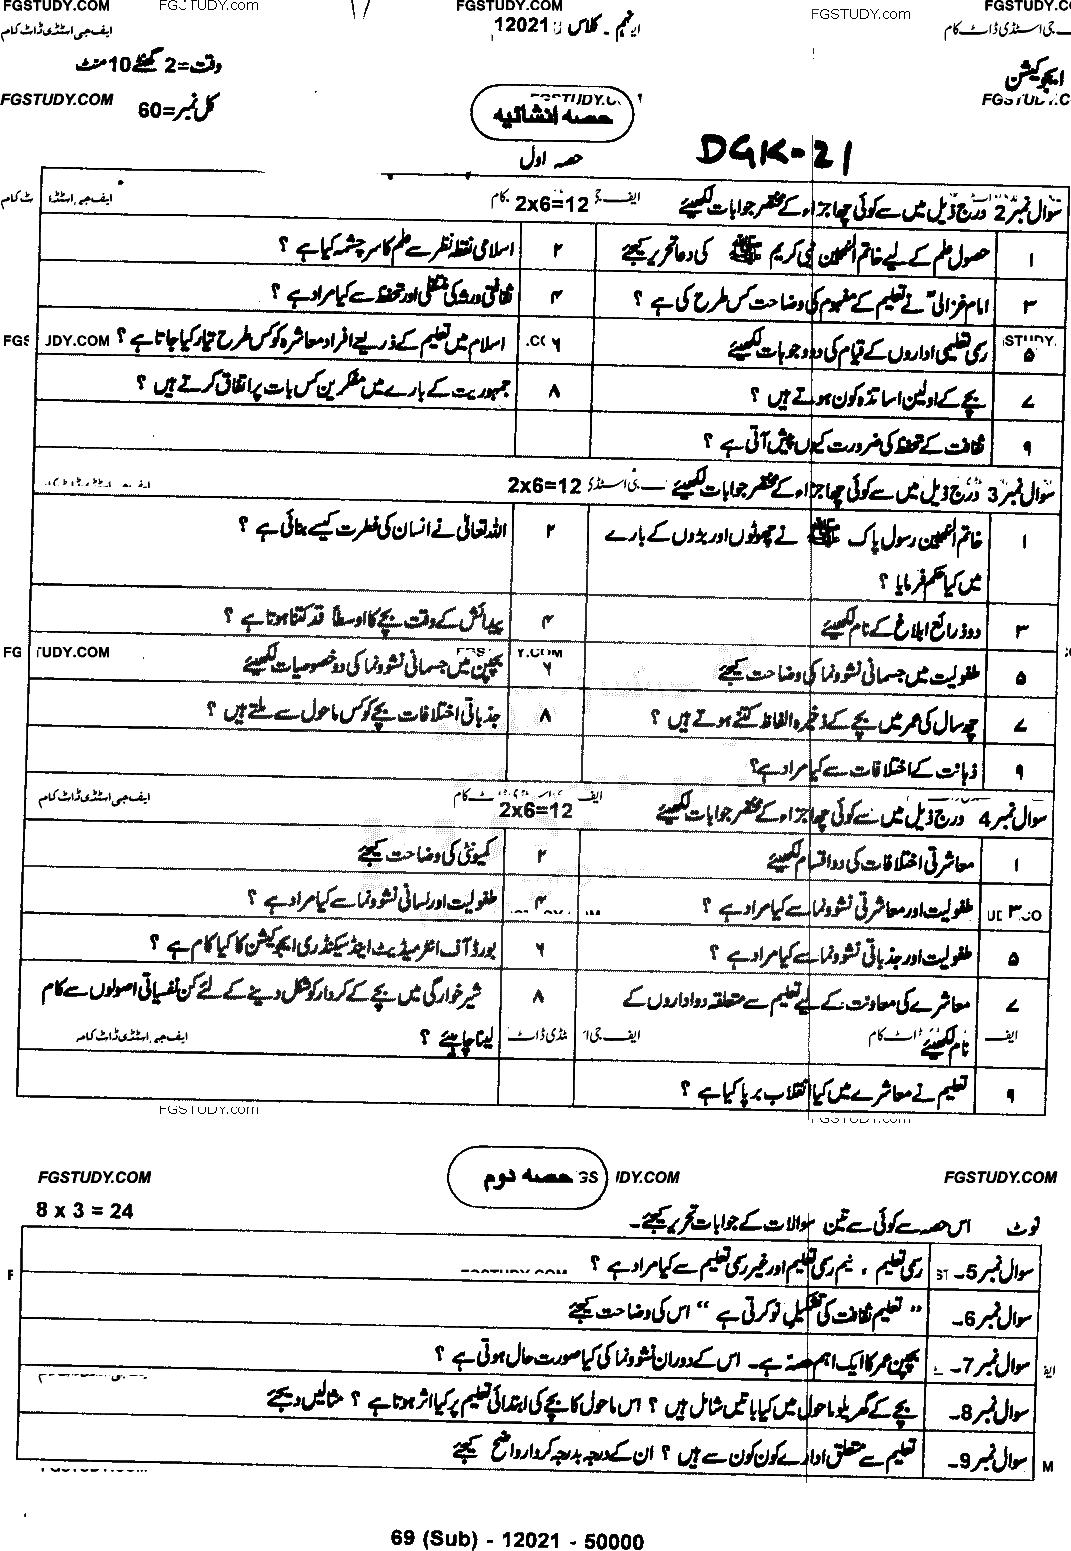 FGSTUDY.COM FGSTUDY.COM FGSTUDY.COM FGSTUDY.com FGSTUDY.CO
ایف جی اسٹڈی ڈاٹ کام نہم ۔ کلاس 12021 جی اسٹڈی ڈاٹ کام
ایجوکیشن وقت=2 گھنٹے 10 منٹ
FGSTUDY.COM کل نمبر=60
حصہ انشائیہ
DGK-21
حصہ اول
سوال نمبر 2 درج ذیل میں سے کوئی چھ اجزاء کے مختصر جوابات لکھیئے 2x6=12
۱ حصول علم کے لیے خاتم النبیین نبی کریم ﷺ کی دعا تحریر کیجئے
۲ اسلامی نقطہ نظر سے علم کا سرچشمہ کیا ہے ؟
۳ امام غزالیؒ نے تعلیم کے مفہوم کی وضاحت کس طرح کی ہے ؟
۴ ثقافتی ورثہ کی منتقلی اور تحفظ سے کیا مراد ہے ؟
۵ رسمی تعلیمی اداروں کے قیام کی دو وجوہات لکھیئے
۶ اسلام میں تعلیم کے ذریعے افراد معاشرہ کو کس طرح تیار کیا جاتا ہے ؟
۷ بچے کے اولین اساتذہ کون ہوتے ہیں ؟
۸ جمہوریت کے بارے میں مفکرین کس بات پر اتفاق کرتے ہیں ؟
۹ ثقافت کے تحفظ کی ضرورت کیوں پیش آتی ہے ؟
سوال نمبر 3 درج ذیل میں سے کوئی چھ اجزاء کے مختصر جوابات لکھیئے 2x6=12
۱ خاتم النبیین رسول پاک ﷺ نے چھوٹوں اور بڑوں کے بارے
میں کیا حکم فرمایا ؟
۲ اللہ تعالیٰ نے انسان کی فطرت کیسے بنائی ہے ؟
۳ دو ذرائع ابلاغ کے نام لکھیئے
۴ پیدائش کے وقت بچے کا اوسطاً قد کتنا ہوتا ہے ؟
۵ طفولیت میں جسمانی نشوونما کی وضاحت کیجئے
۶ بچپن میں جسمانی نشوونما کی دو خصوصیات لکھیئے
۷ چھ سال کی عمر میں بچے کے ذخیرہ الفاظ کتنے ہوتے ہیں ؟
۸ جذباتی اختلافات بچے کو کس ماحول سے ملتے ہیں ؟
۹ ذہانت کے اختلافات سے کیا مراد ہے؟
سوال نمبر 4 درج ذیل میں سے کوئی چھ اجزاء کے مختصر جوابات لکھیئے 2x6=12
۱ معاشرتی اختلافات کی دو اقسام لکھیئے
۲ کمیونٹی کی وضاحت کیجئے
۳ طفولیت اور معاشرتی نشوونما سے کیا مراد ہے ؟
۴ طفولیت اور لسانی نشوونما سے کیا مراد ہے ؟
۵ طفولیت اور جذباتی نشوونما سے کیا مراد ہے ؟
۶ بورڈ آف انٹرمیڈیٹ اینڈ سیکنڈری ایجوکیشن کا کیا کام ہے ؟
۷ معاشرے کی معاونت کے لیے تعلیم سے متعلقہ دو اداروں کے
نام لکھیئے
۸ شیر خوارگی میں بچے کے کردار کو شکل دینے کے لئے کن نفسیاتی اصولوں سے کام
لینا چاہیئے ؟
۹ تعلیم نے معاشرے میں کیا انقلاب برپا کیا ہے ؟
FGSTUDY.com FGSTUDY.com
حصہ دوم
FGSTUDY.COM FGSTUDY.COM
نوٹ اس حصہ سے کوئی سے تین سوالات کے جوابات تحریر کیجئے۔ 8 x 3 = 24
سوال نمبر 5۔ رسمی تعلیم ، نیم رسمی تعلیم اور غیر رسمی تعلیم سے کیا مراد ہے ؟
سوال نمبر 6۔ " تعلیم ثقافت کی تشکیل نو کرتی ہے " اس کی وضاحت کیجئے
سوال نمبر 7۔ بچپن عمر کا ایک اہم حصہ ہے۔ اس کے دوران نشوونما کی کیا صورت حال ہوتی ہے ؟
سوال نمبر 8۔ بچے کے گھریلو ماحول میں کیا باتیں شامل ہیں ؟ اس ماحول کا بچے کی ابتدائی تعلیم پر کیا اثر ہوتا ہے ؟ مثالیں دیجئے
سوال نمبر 9۔ تعلیم سے متعلق ادارے کون کون سے ہیں ؟ ان کے درجہ بدرجہ کردار واضح کیجئے
69 (Sub) - 12021 - 50000